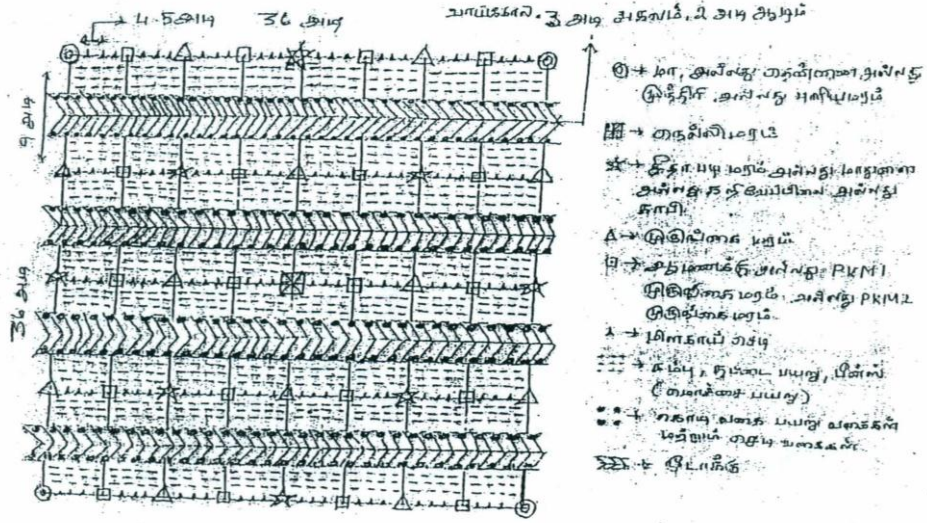 4.5 அடி
36 அடி
வாய்க்கால். 3 அடி அகலம், 2 அடி ஆழம்
9 அடி
36 அடி
→ மா, அல்லது தென்னை அல்லது
முந்திரி அல்லது புளியமரம்
→ நெல்லிமரம்
→ சீதா பழ மரம் அல்லது மாதுளை
அல்லது கறிவேப்பிலை அல்லது
காபி.
→ முருங்கை மரம்
→ ஆமணக்கு அல்லது PKM1
முருங்கை மரம், அல்லது PKM2
முருங்கை மரம்.
→ மிளகாய் செடி
→ கம்பு, தட்டை பயறு, பீன்ஸ்
(மொச்சை பயறு)
→ கொடி வகை பயறு வகைகள்
மற்றும் செடி வகைகள்
→ மூடாக்கு